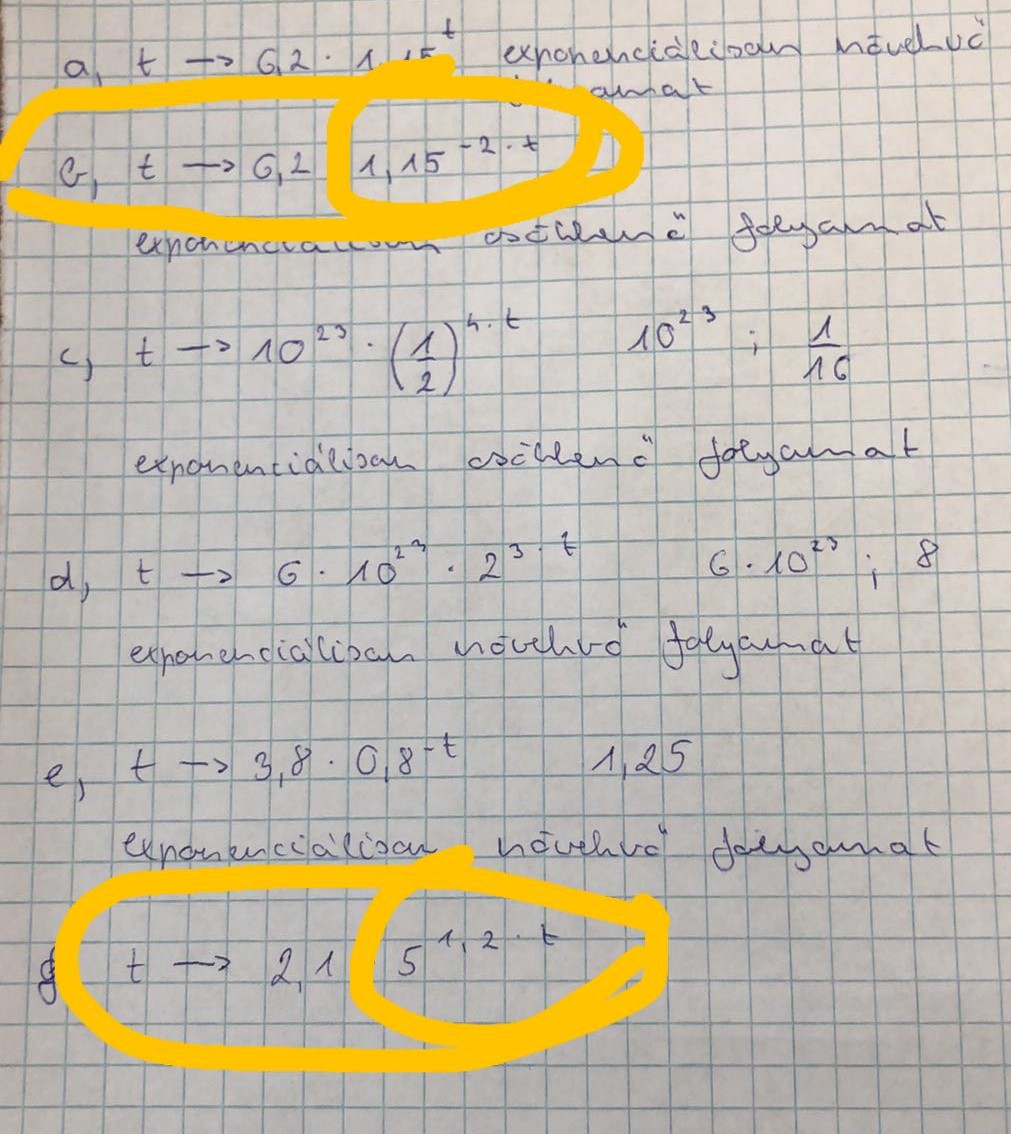 a, t → 6,2 · 1,15^t exponenciálisan növekvő
folyamat
b, t → 6,2 1,15^-2·t
exponenciálisan csökkenő folyamat
c, t → 10^23 · (1/2)^4·t 10^23 ; 1/16
exponenciálisan csökkenő folyamat
d, t → 6 · 10^23 · 2^3·t 6 · 10^23 ; 8
exponenciálisan növekvő folyamat
e, t → 3,8 · 0,8^-t 1,25
exponenciálisan növekvő folyamat
t → 2,1 5^1,2·t